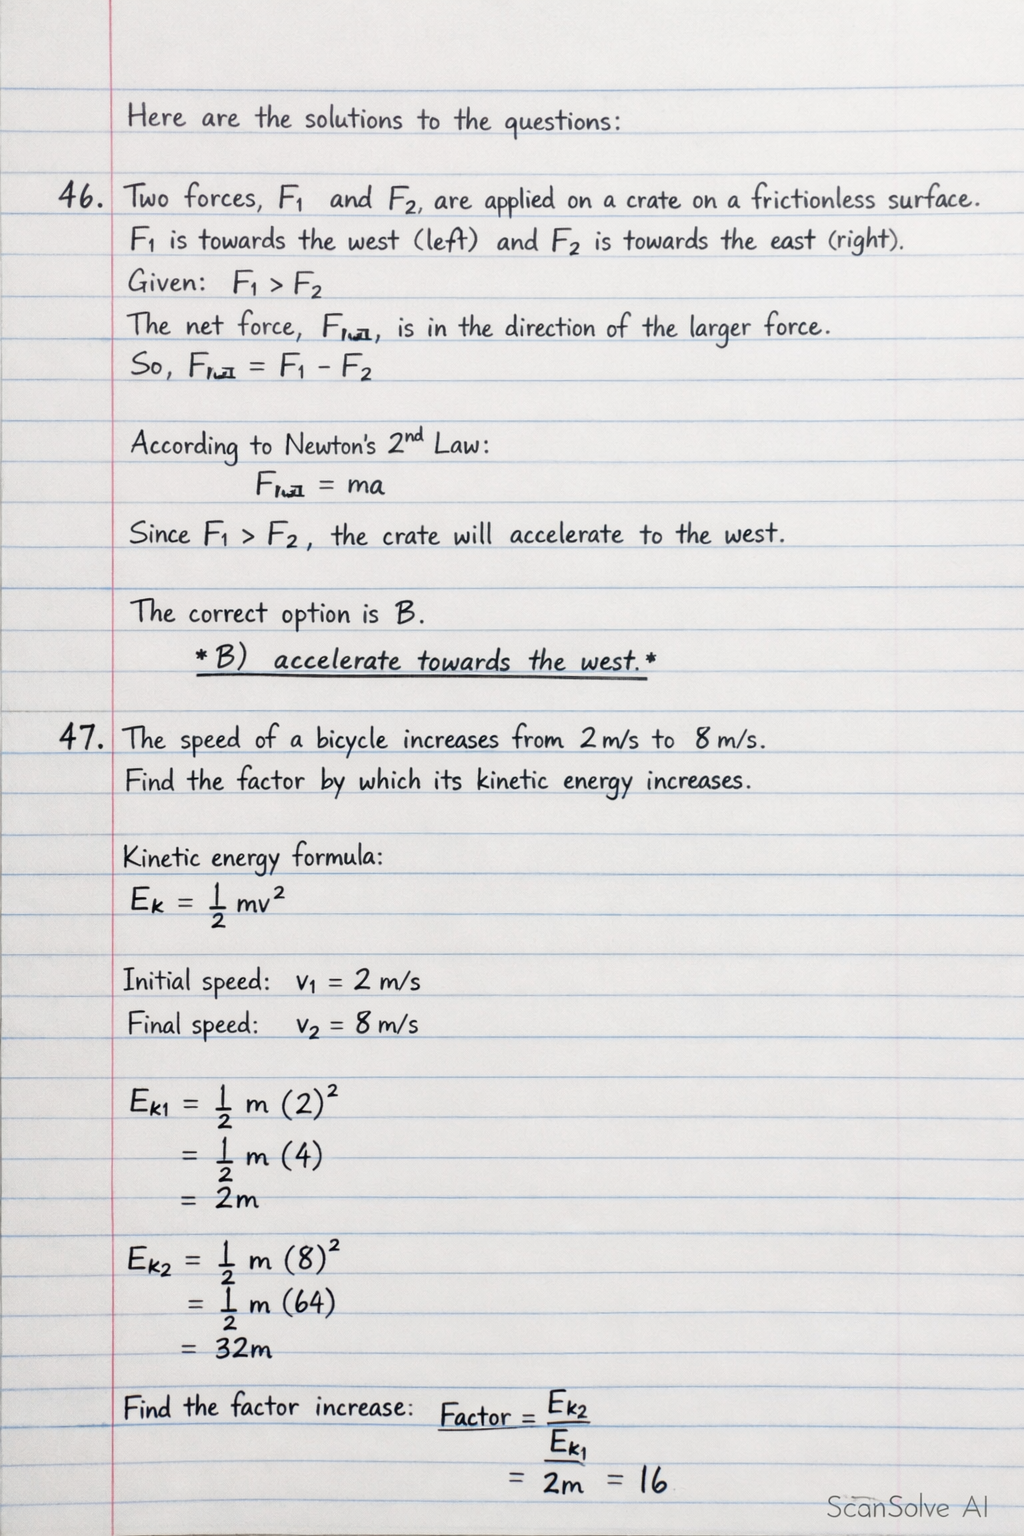 Here are the solutions to the questions:
46. Two forces, F₁ and F₂, are applied on a crate on a frictionless surface.
F₁ is towards the west (left) and F₂ is towards the east (right).
Given: F₁ > F₂
The net force, F, is in the direction of the larger force.
So, F = F₁ - F₂
According to Newton's 2ⁿᵈ Law:
F = ma
Since F₁ > F₂, the crate will accelerate to the west.
The correct option is B.
*B) accelerate towards the west.*
47. The speed of a bicycle increases from 2 m/s to 8 m/s.
Find the factor by which its kinetic energy increases.
Kinetic energy formula:
Eₖ = 1/2 mv²
Initial speed: v₁ = 2 m/s
Final speed: v₂ = 8 m/s
Eₖ₁ = 1/2 m (2)²
= 1/2 m (4)
= 2m
Eₖ₂ = 1/2 m (8)²
= 1/2 m (64)
= 32m
Find the factor increase: Factor = Eₖ₂
Eₖ₁
= 2m = 16
ScanSolve AI